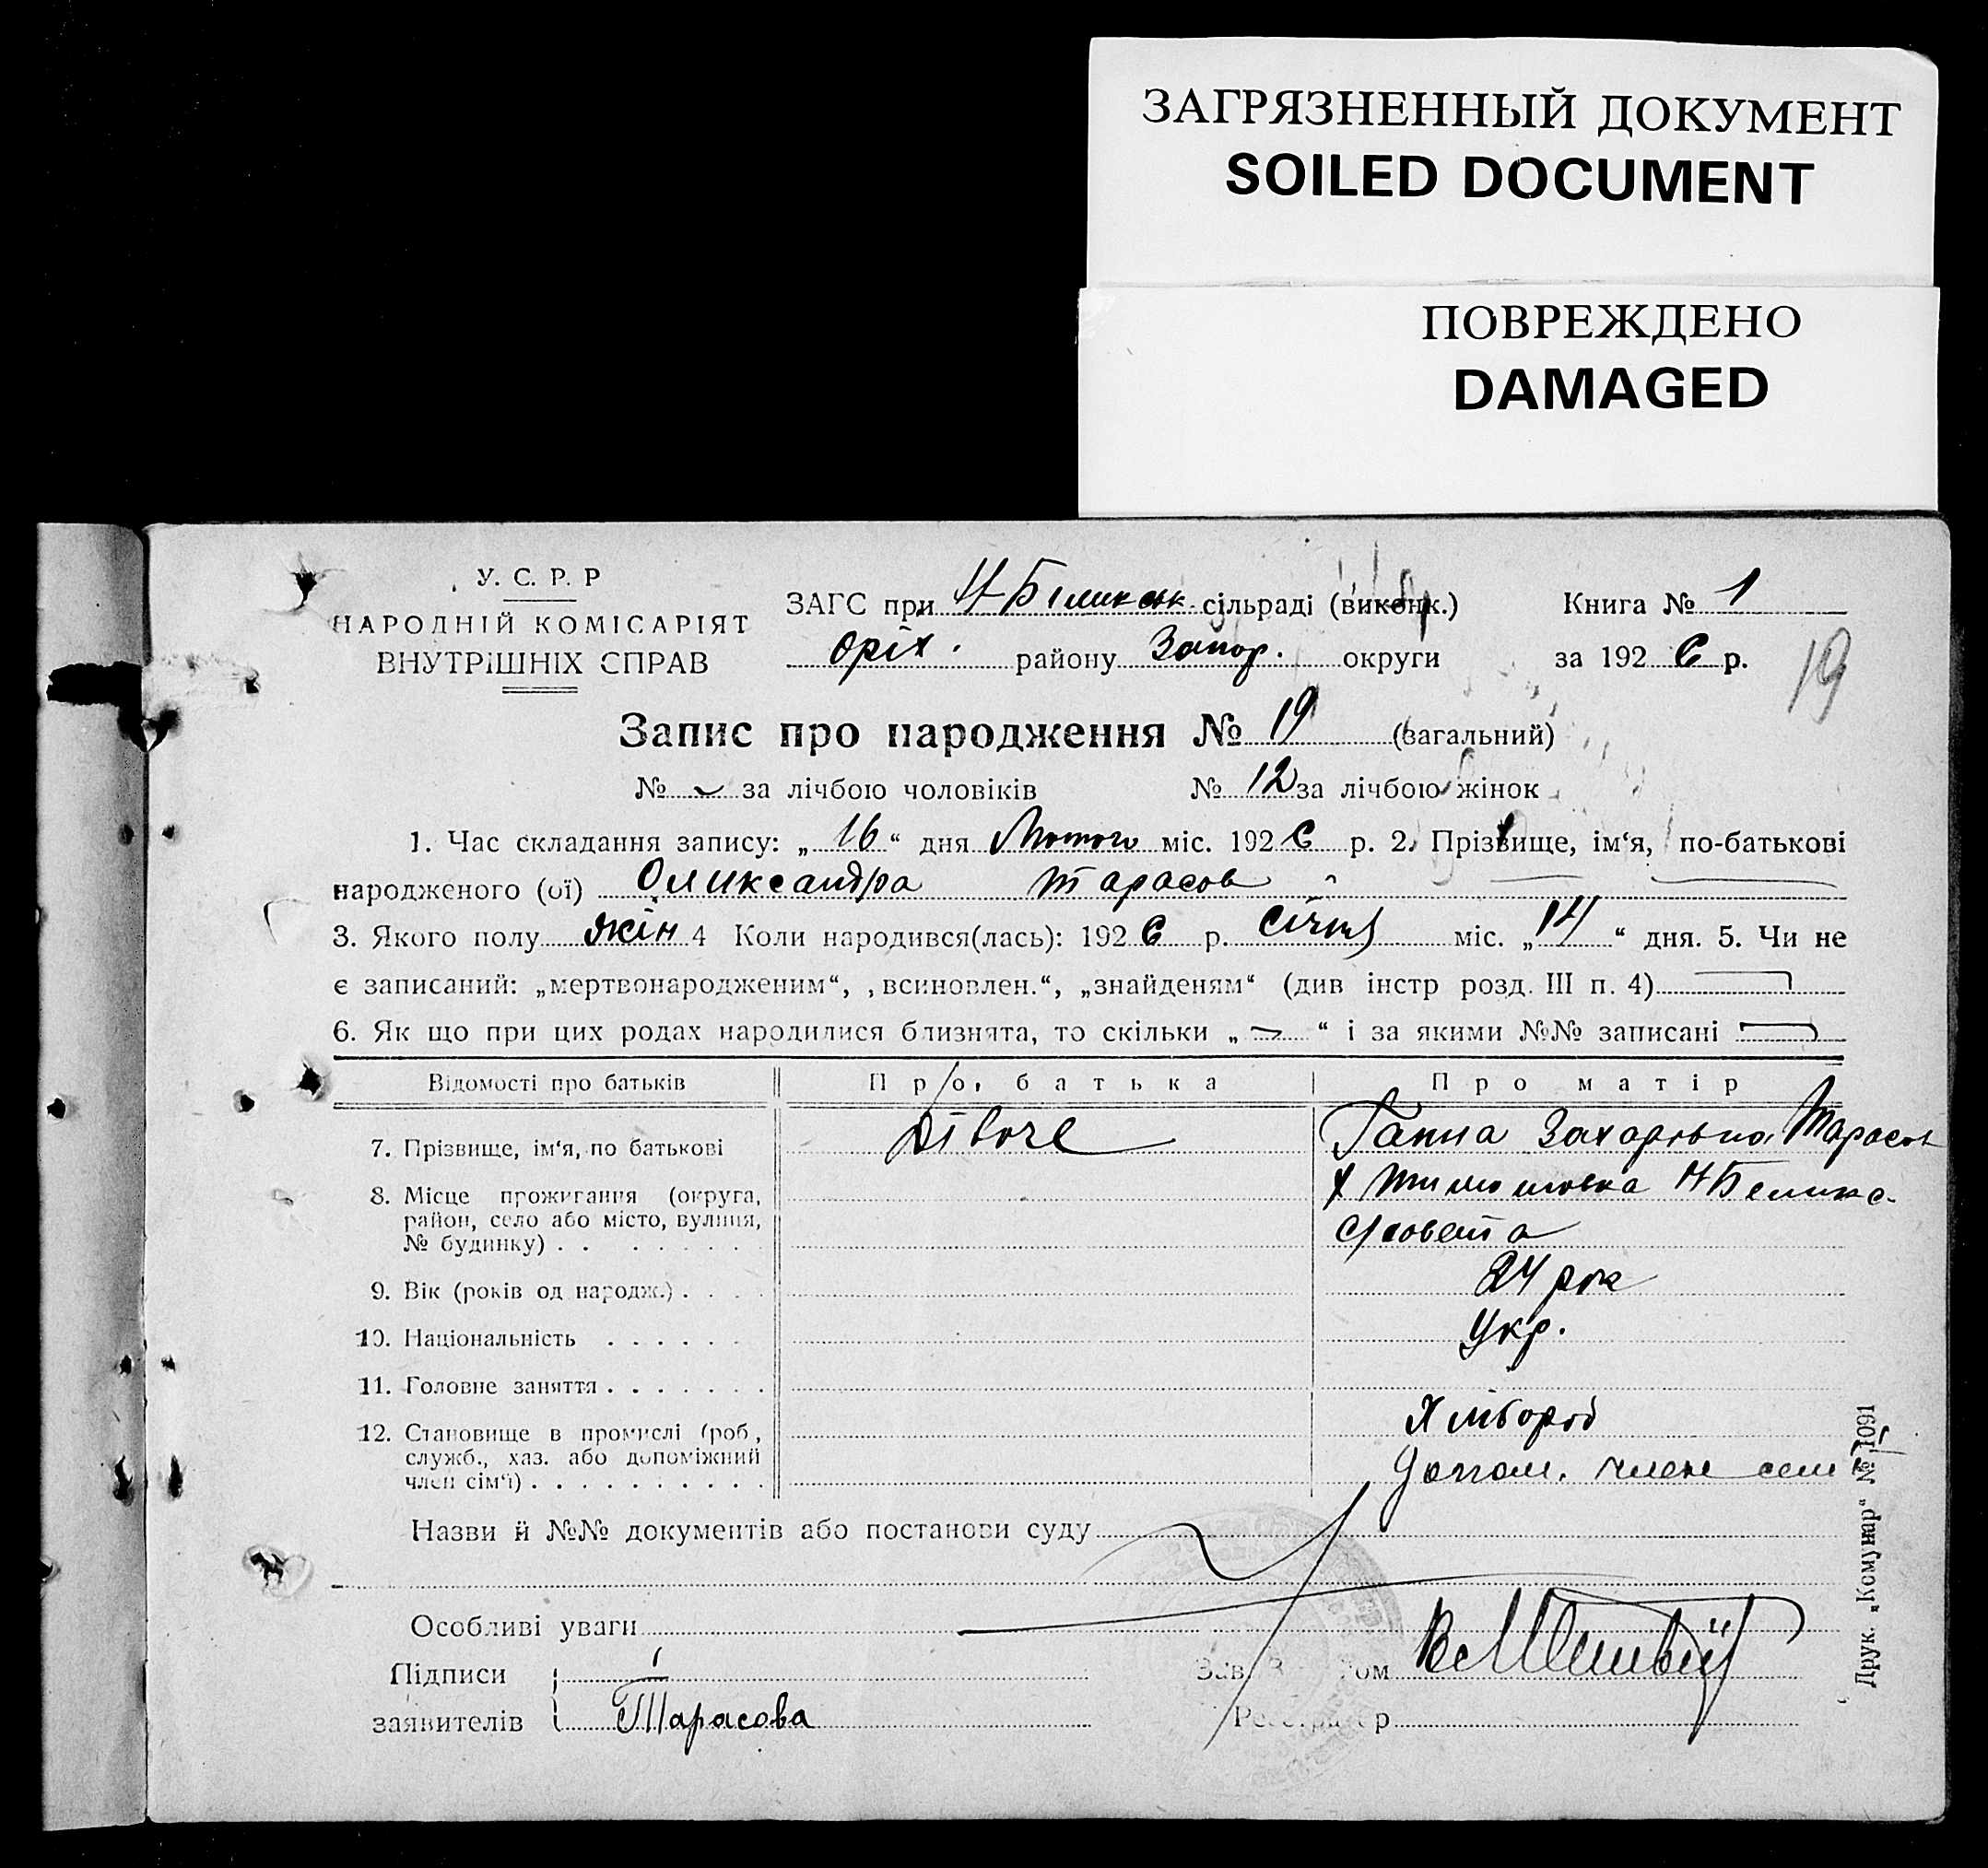 ЗАГРЯЗНЕННЫЙ ДОКУМЕНТ
SOILED DOCUMENT
ПОВРЕЖДЕНО
DAMAGED
У. С. Р. Р
НАРОДНІЙ КОМІСАРІЯТ
ВНУТРІШНІХ СПРАВ
ЗАГС при сільраді (виконк.)
Оріх. району Запор. округи
Книга № 1
за 1926 р.
19
Запис про народження № 19 (загальний)
№ за лічбою чоловіків № 12 за лічбою жінок
1. Час складання запису: „16“ дня Лютого міс. 1926 р. 2. Прізвище, ім‘я, по-батькові
народженого (ої) Олександра Тарасов
3. Якого полу жін 4 Коли народився(лась): 1926 р. Січня міс. „14“ дня. 5. Чи не
є записаний: „мертвонародженим“, „всиновлен.“, „знайденям“ (див інстр розд. III п. 4)
6. Як що при цих родах народилися близнята, то скільки „ “ і за якими №№ записані
Відомості про батьків Про батька Про матір
7. Прізвище, ім‘я, по батькові Ганна Захаровна Тарасов
8. Місце проживання (округа,
район, село або місто, вулиця,
№ будинку)
9. Вік (років од народж.) 24 рок
10. Національність Укр.
11. Головне заняття Хлібороб
12. Становище в промислі (роб,
служб., хаз. або допоміжний
член сім‘ї) Допом. член сем
Назви й №№ документів або постанови суду
Особливі уваги
Підписи
заявителів Тарасова
Друк. „Комунар“ № 1091